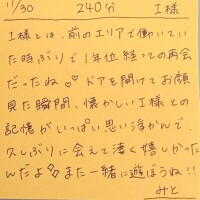 11/30 240分 I様
I様とは、前のエリアで働いてい
た時ぶりで1年位経っての再会
だったね♡ ドアを開けてお顔
見た瞬間、懐かしいI様との
記憶がいっぱい思い浮かんで、
久しぶりに会えて凄く嬉しかった
んだよ♪ また一緒に遊ぼうね!!
みと